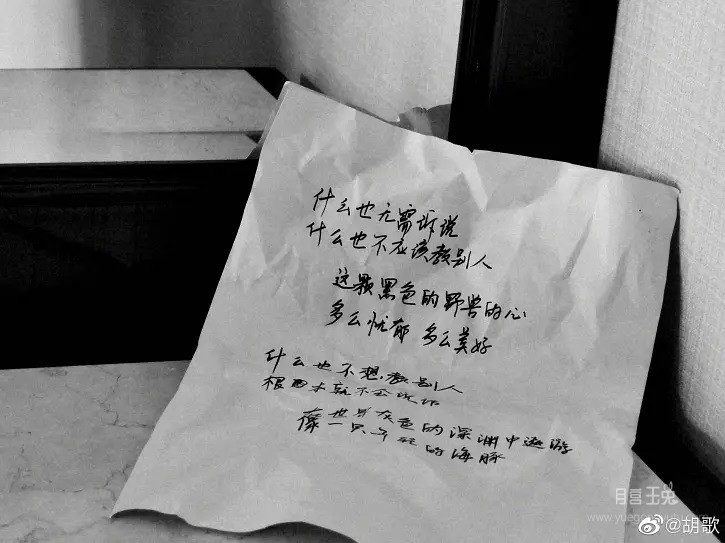 什么也无需诉说
什么也不应该教别人
这颗黑色的野兽的心
多么忧郁 多么美好
什么也不想教别人
根本就不会说话
在世界灰色的深渊中遨游
像一只年轻的海豚
月喜玉兔
@胡歌